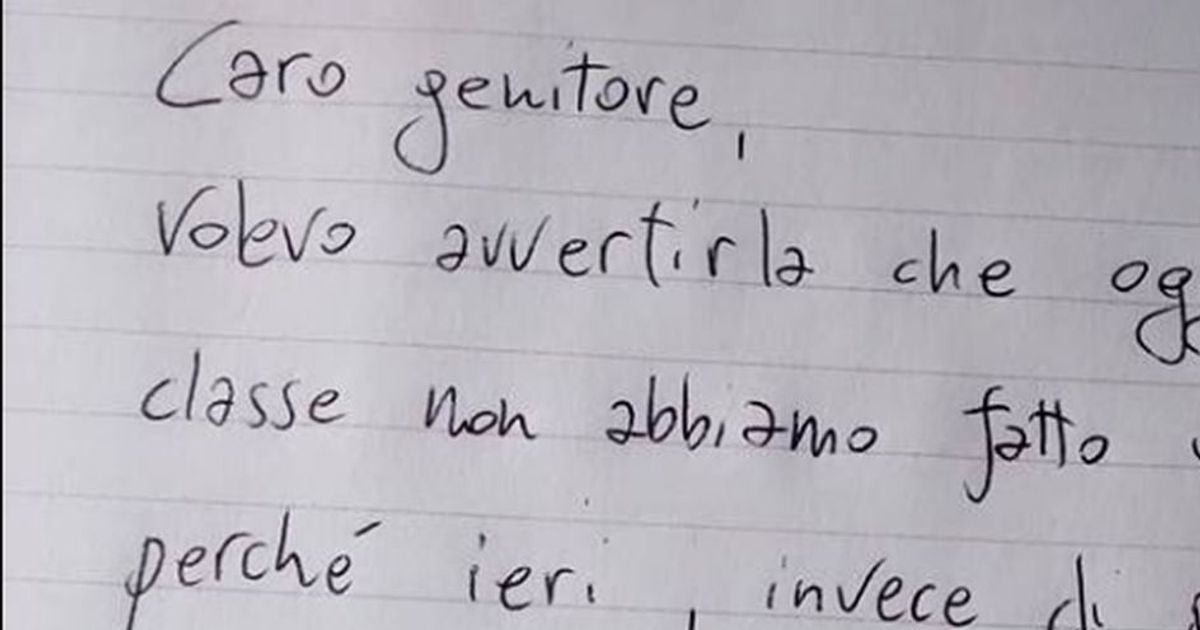 Caro genitore,
Volevo avvertirla che
classe non abbiamo fatto
perché ieri, invece di